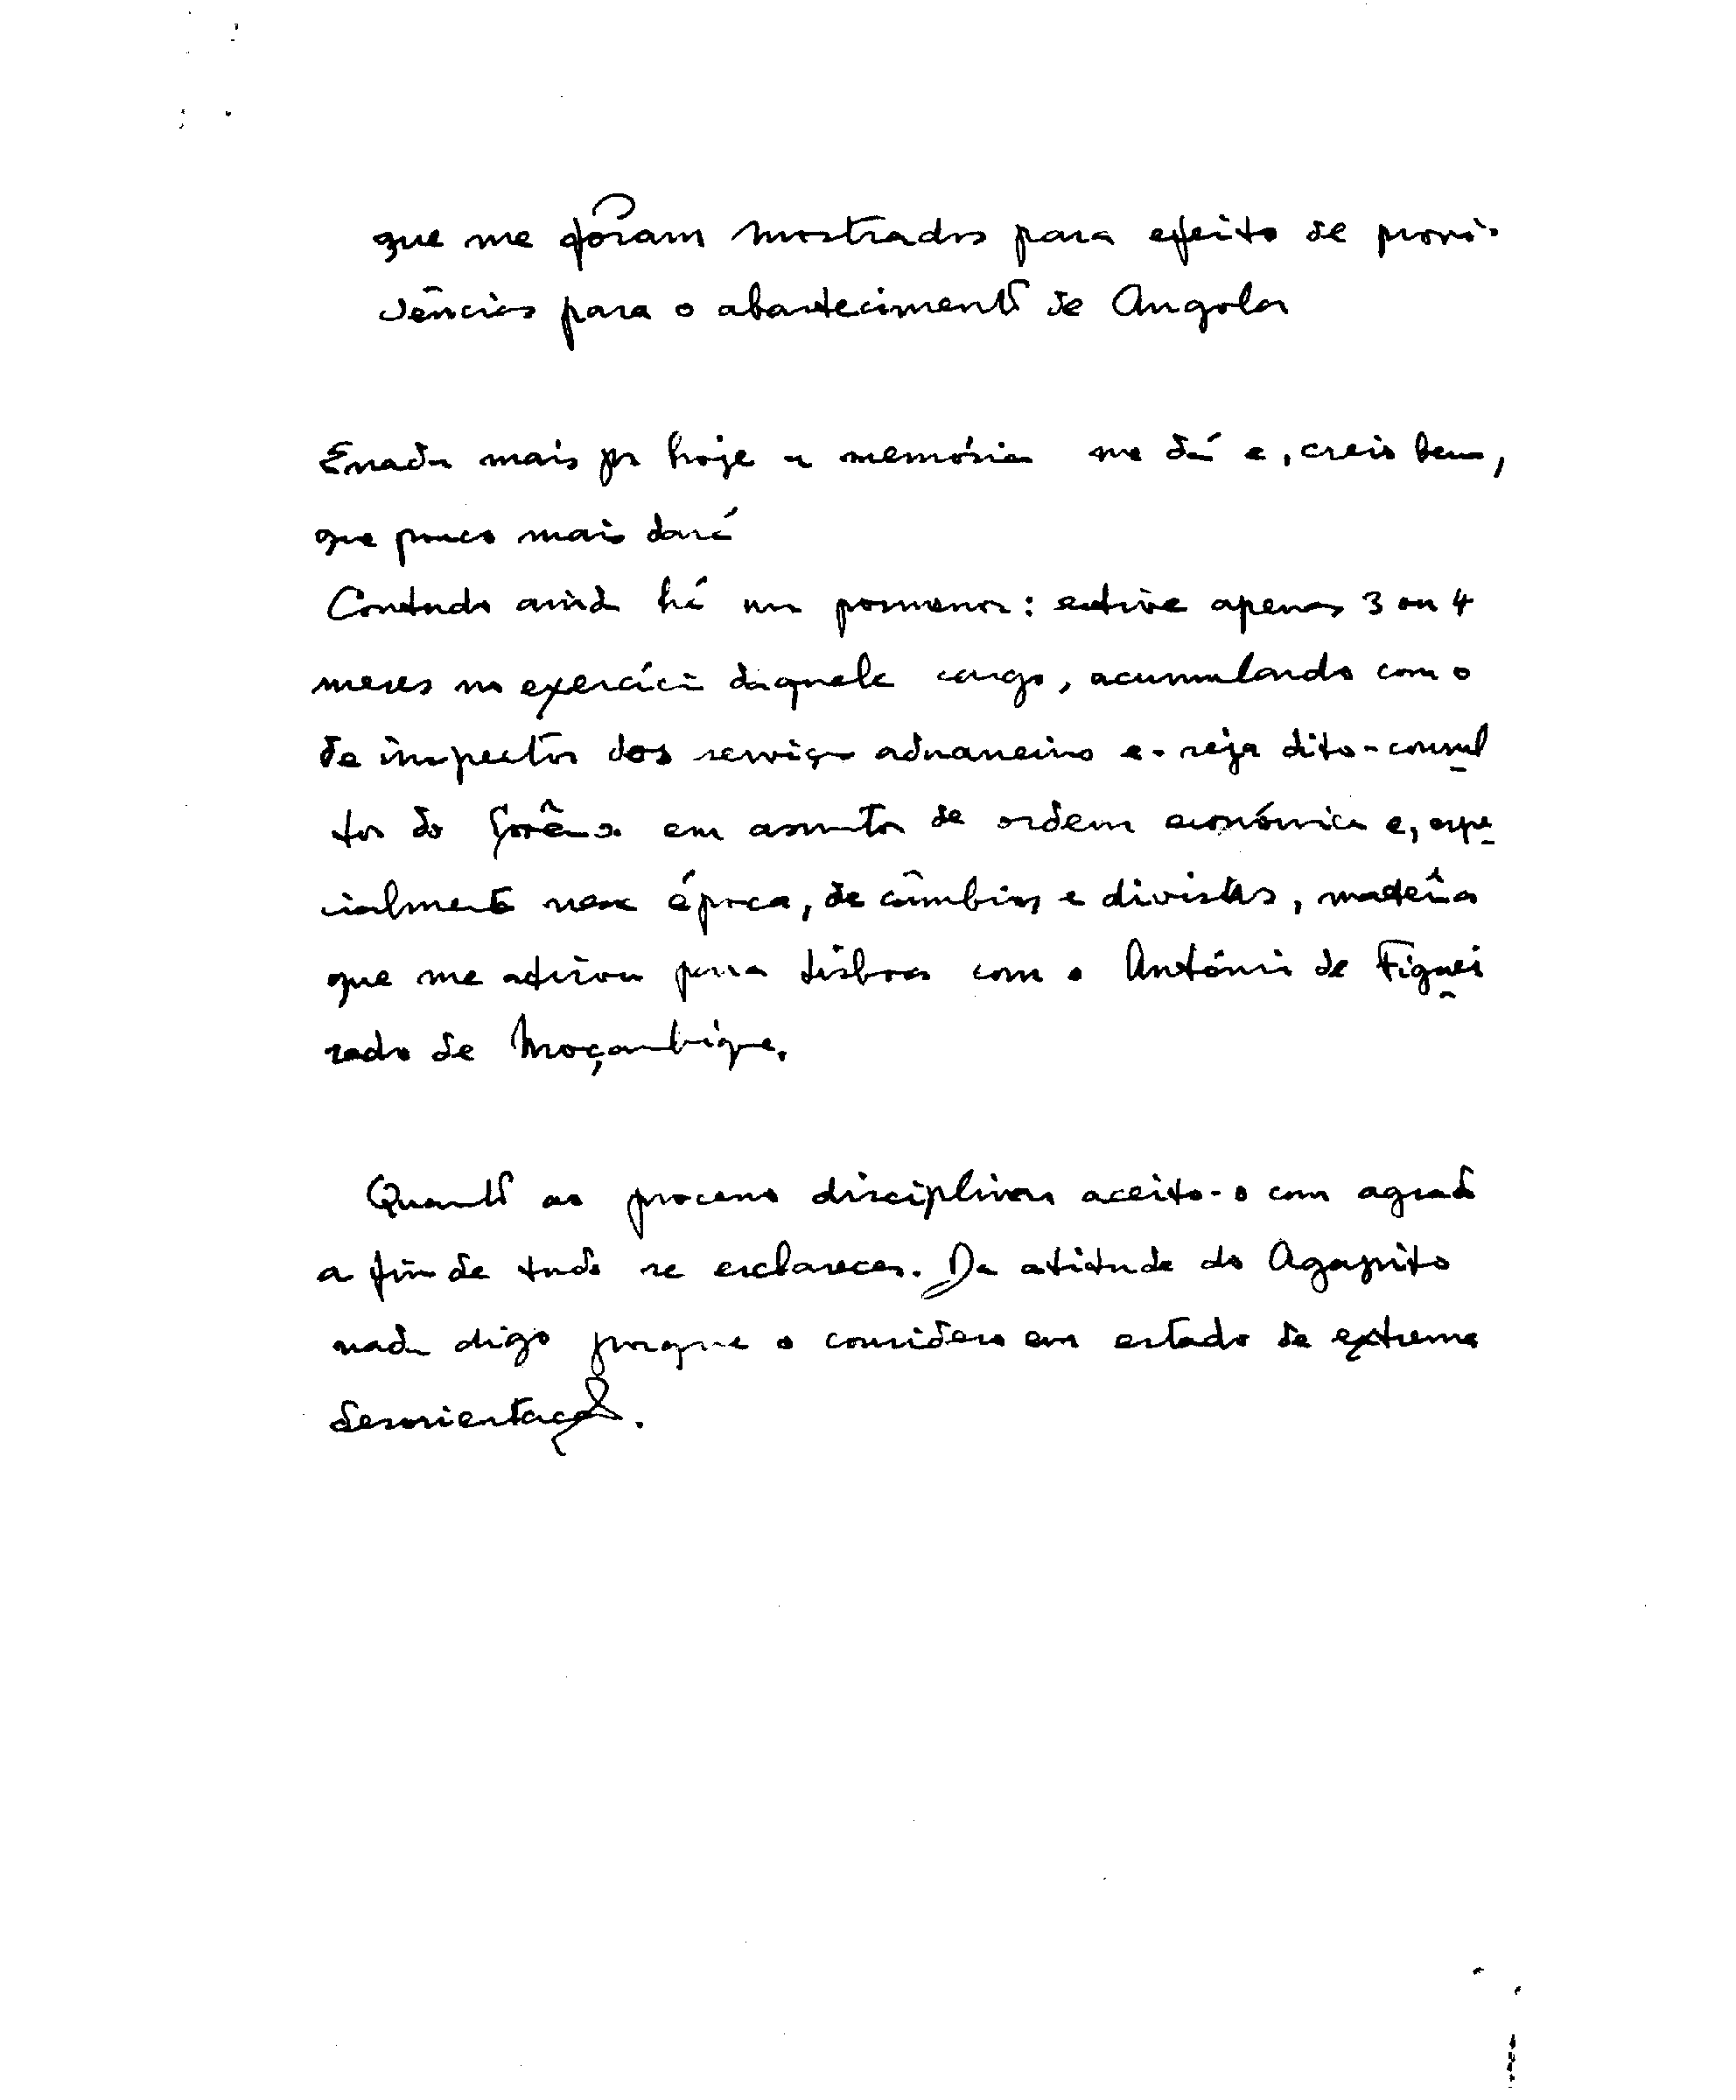 que me fôram mostrados para efeito de provi-
dências para o abastecimento de Angola
E nada mais por hoje a memória me dá e, creio bem,
que pouco mais dará
Contudo ainda há um pormenor: estive apenas 3 ou 4
meses no exercício daquele cargo, acumulando com o
de inspector dos serviços aduaneiros e - seja dito - consul
tor do Govêrno em assuntos de ordem económica e, espe
cialmente nessa época, de câmbios e divisas, matéria
que me atirou para Lisboa com o António de Figuei
redo de Moçambique.
Quanto ao processo disciplinar aceito-o com agrado
a fim de tudo se esclarecer. Da atitude do Agapito
nada digo porque o considero em estado de extrema
desorientação.